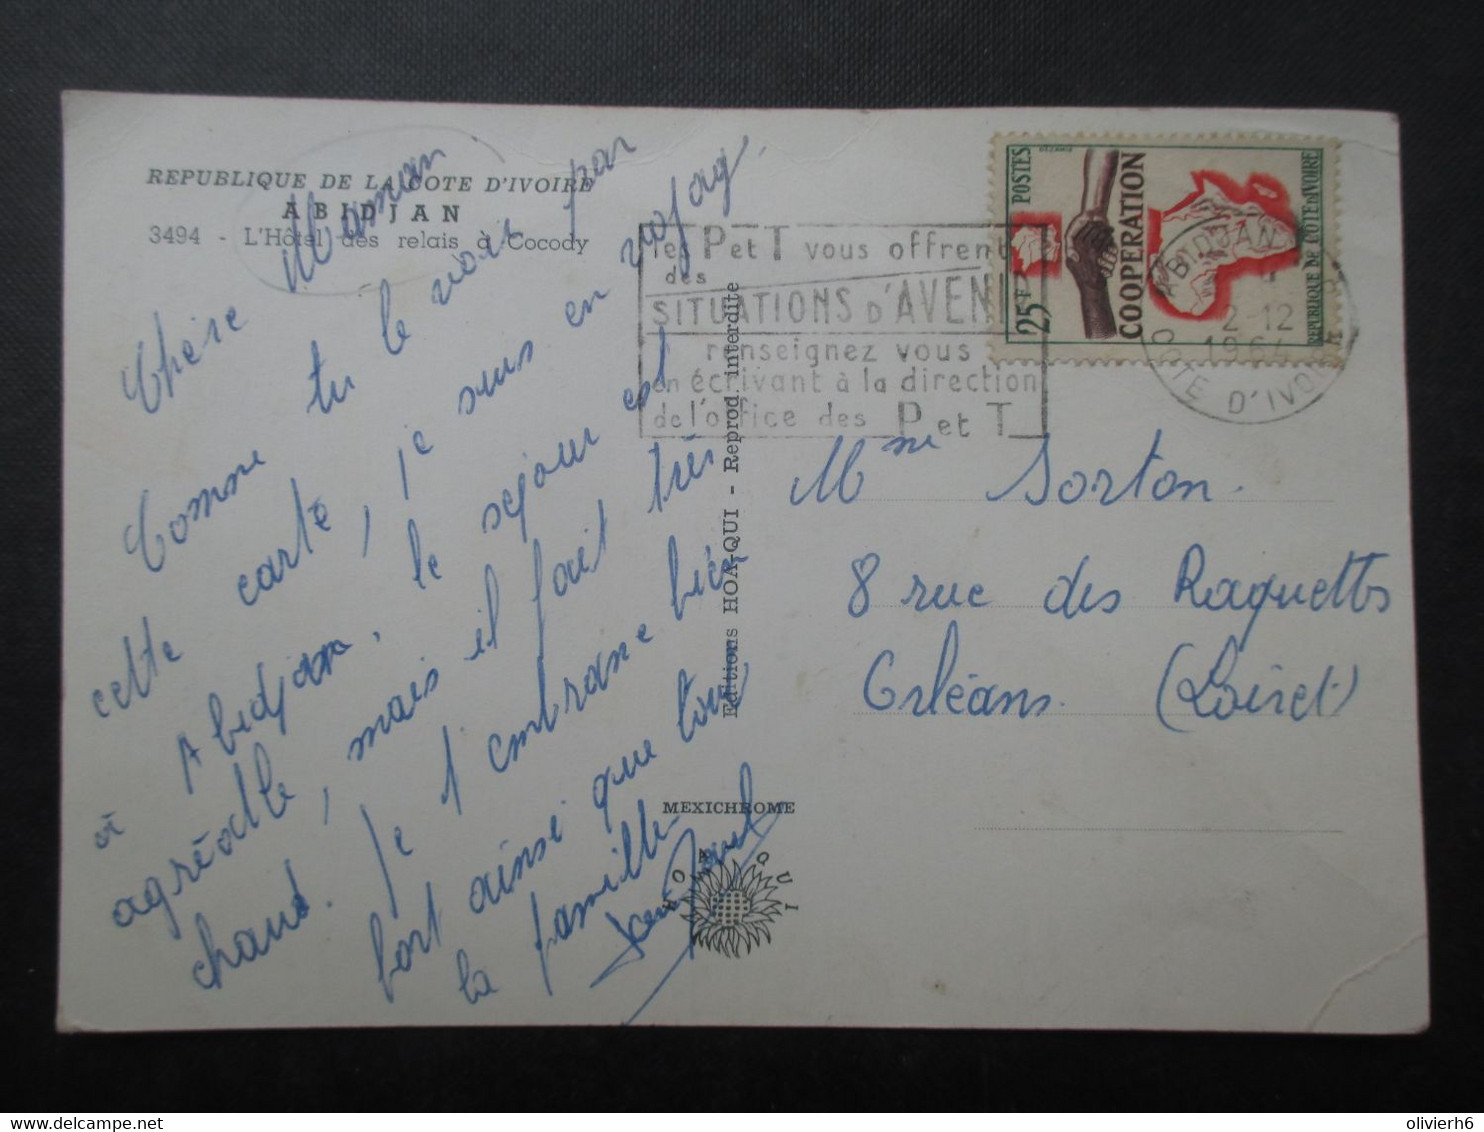 REPUBLIQUE DE LA COTE D'IVOIRE
ABIDJAN
3494 - L'Hôtel des relais à Cocody
Chère Maman
Comme tu le vois par
cette carte, je suis en voyag
à Abidjan. le séjour est
agréable, mais il fait très
chaud. Je t'embrasse bien
fort ainsi que toute
la famille
les P et T vous offrent
des
SITUATIONS D'AVENIR
renseignez vous
en écrivant à la direction
de l'office des P et T
POSTES
25F
DECARIS
COOPERATION
REPUBLIQUE DE COTE D'IVOIRE
ABIDJAN
2-12
1964
COTE D'IVOIRE
Editions HOA-QUI - Reprod. interdite
Mme Sorton.
8 rue des Raquettes
Orléans. (Loiret)
MEXICHROME
HOA QUI
olivierh6